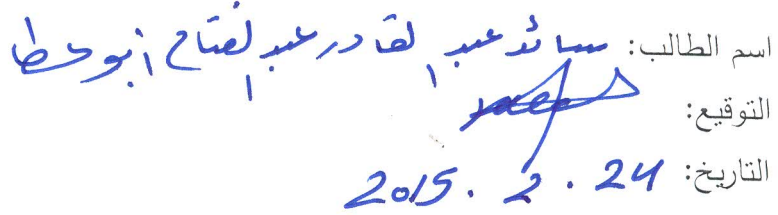 اسم الطالب: سائد عبد القادر عبد الفتاح أبو عطا
التوقيع:
التاريخ: 24 . 2 . 2015